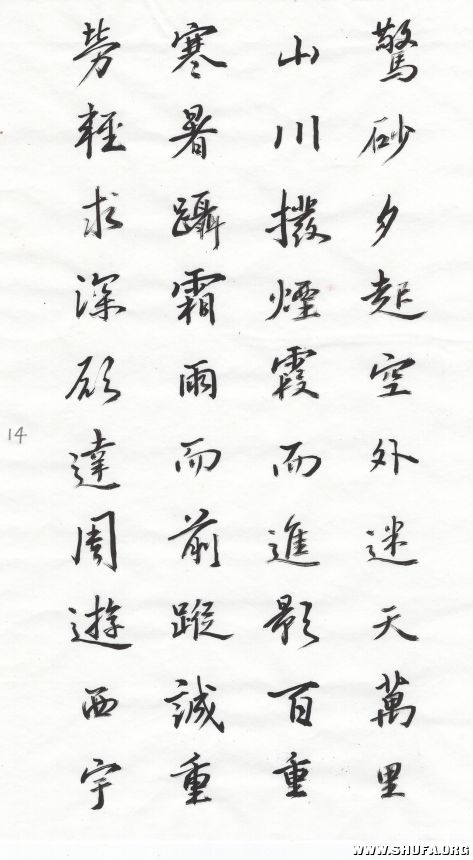 驚砂夕起空外迷天萬里
山川撥煙霞而進影百重
寒暑躡霜雨而前蹤誠重
勞輕求深願達周遊西宇
14
WWW.SHUFA.ORG